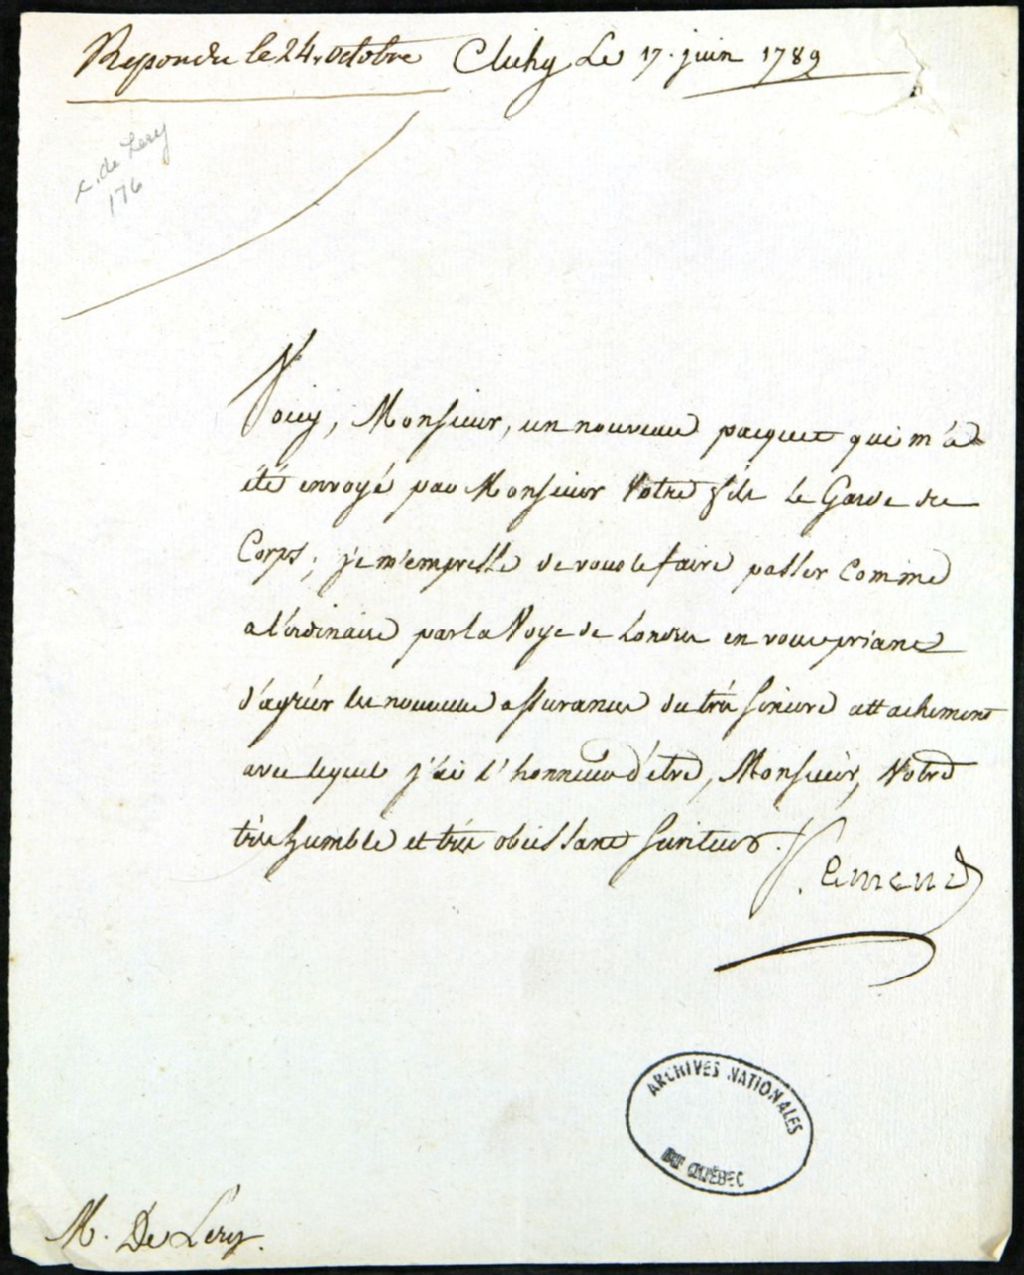 Repondu le 24. octobre Clichy Le 17. juin 1789
c. de Lery
176
Voicy, Monsieur, un nouveau pacquet qui m'a
été envoyé par Monsieur Votre fils le Garde du
Corps; je m'empresse de vous le faire passer comme
a l'ordinaire par la Voye de Londres en vous priant
d'agréer les nouvelles assurances du très sincere attachement
avec lequel j'ai l'honneur d'être, Monsieur, Votre
très humble et très obeissant serviteur.
M. De Lery.
ARCHIVES NATIONALES
DU QUÉBEC